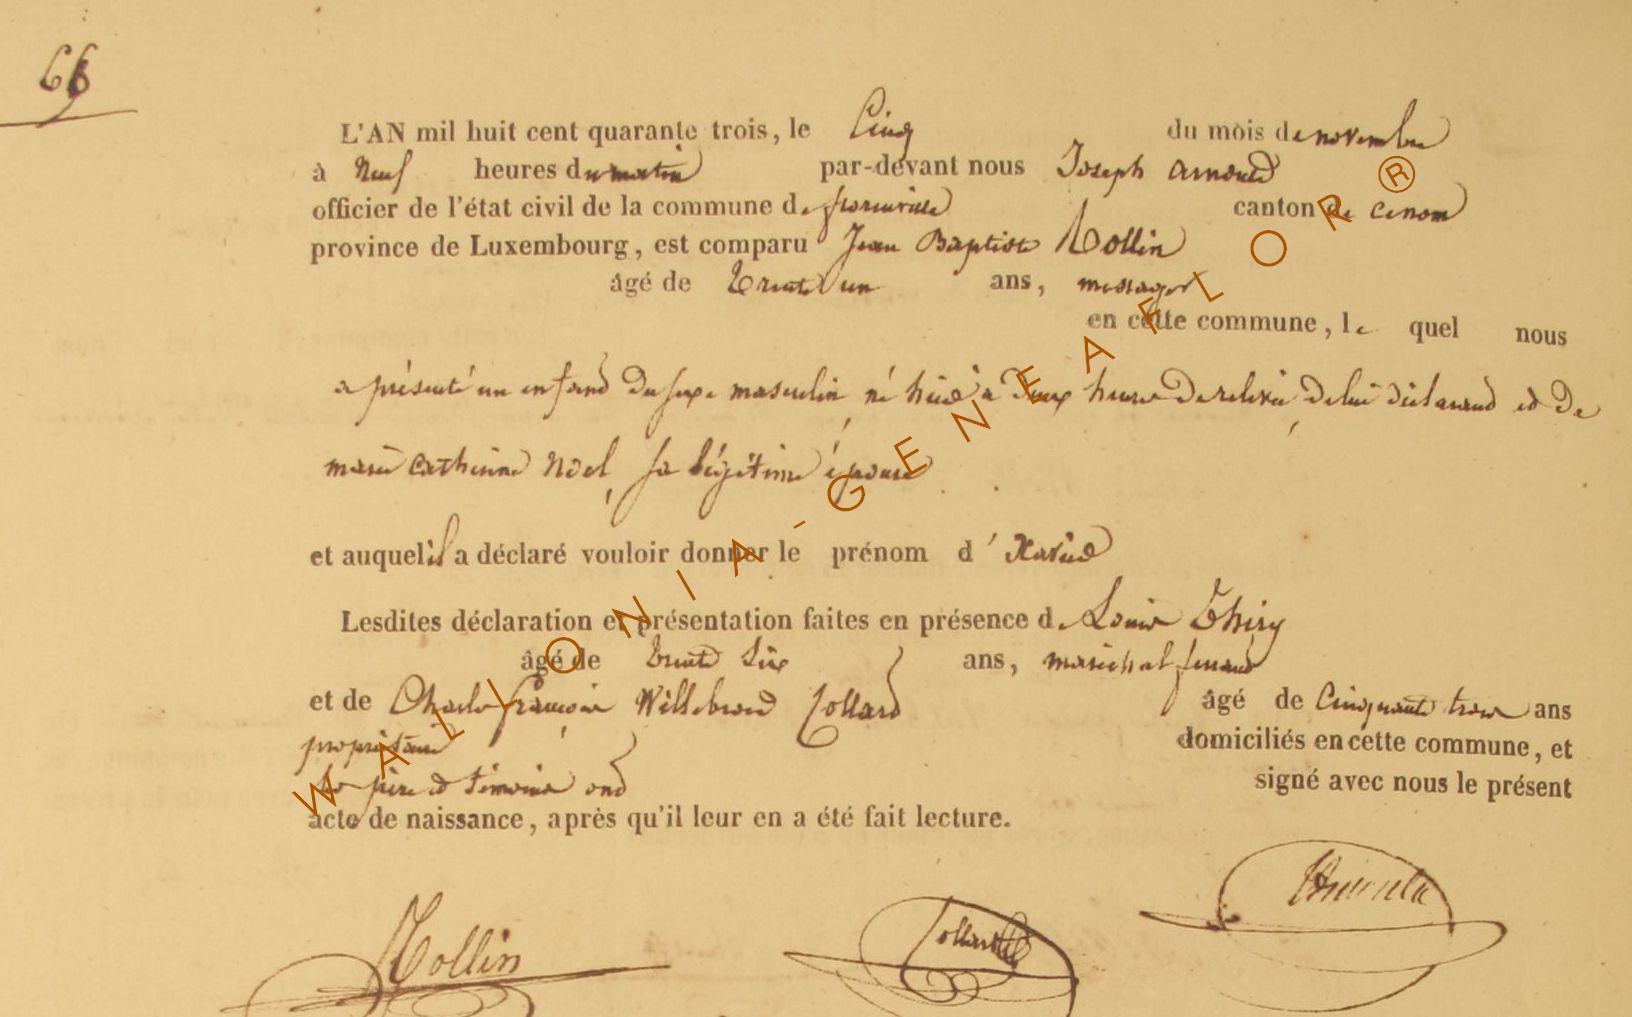 66
L'AN mil huit cent quarante trois, le Cinq du mois de novembre
à Neuf heures du matin par-devant nous Joseph arnould
officier de l'état civil de la commune de florenville canton de
province de Luxembourg, est comparu Jean Baptiste Rollin
âgé de Trente un ans, messager
en cette commune, le quel nous
a présenté un enfand du sexe masculin né hier à Deux heures de relevée, de lui déclarand et de
marie catherine Noel, sa légitime épouse
et auquel il a déclaré vouloir donner le prénom d' Xavier
Lesdites déclaration et présentation faites en présence de Louis Thiry
âgé de trente six ans, maréchal ferrand
et de Charles françois Willebrord Collard âgé de Cinquante trois ans
propriétaire domiciliés en cette commune, et
les père et témoins ond signé avec nous le présent
acte de naissance, après qu'il leur en a été fait lecture.
Rollin
WALLONIA-GENEAFLOR®